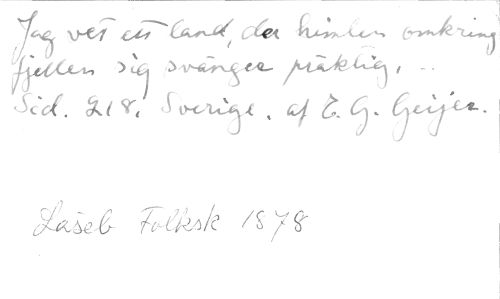 Jag vet ett land, der himlen omkring
fjellen sig svänger präktig, ..
Sid. 218, Sverige. af E. G. Geijer.
Läseb Folksk 1878